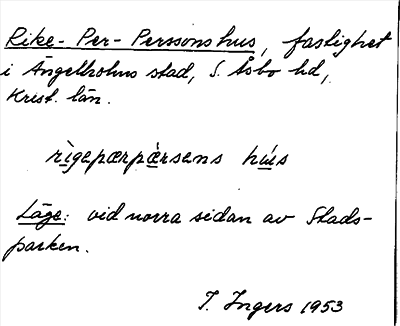 Rike-Per-Perssons hus, fastighet
i Ängelholms stad, S. Åsbo hd,
Krist. län.
rìgepærpæ̀rsens hú̶s
Läge: vid norra sidan av Stads-
parken.
I. Ingers 1953